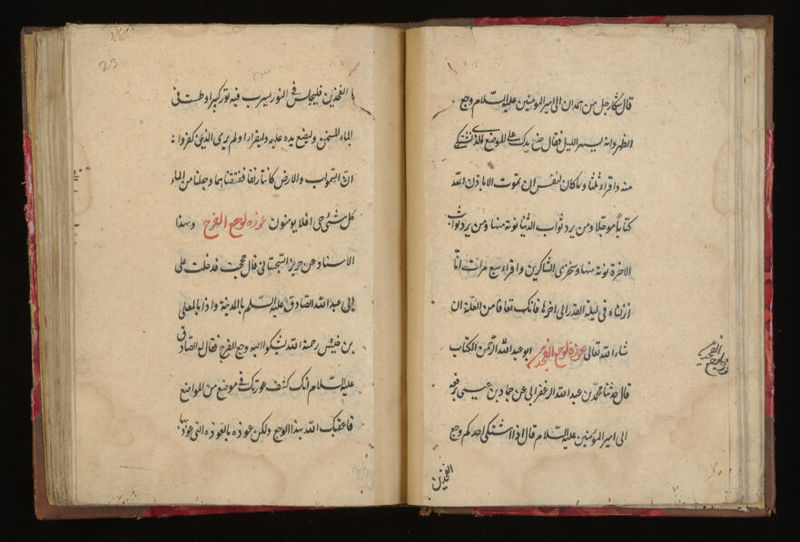 قال شكا رجل من همدان الى امير المؤمنين عليه السلام وجع
الظهر وانه يسهر الليل فقال ضع يدك على الموضع الذي تشتكي
منه واقراء ثلثا وما كان لنفس ان تموت الا باذن الله
كتابا موجلا ومن يرد ثواب الدنيا نوته منها ومن يرد ثواب
الاخرة نوته منها وسنجزى الشاكرين واقراء سبع مرات انا
انزلناه في ليلة القدر الى اخرها فانك تعافا من العلة ان
شاء الله تعالى عوذة لوجع الفخذين ابو عبد الله الرحمن الكاتب
قال حدثنا محمد بن عبد الله الزعفراني عن حماد بن عيسى رفعه
الى امير المؤمنين عليه السلام قال اذا اشتكى احدكم وجع
الفخذين
23
الفخذين فليجلس في تور كبير او طست في
الماء المسخن وليضع يده عليه وليقرا اولم يرى الذين كفروا
ان السموات والارض كانتا رتقا ففتقناهما وجعلنا من الماء
كل شئ حي افلا يومنون عوذه لوجع الفرج وبهذا
الاسناد عن حريز السجستاني قال حججت فدخلت على
ابي عبد الله الصادق عليه السلم بالمدينة واذا بالمعلى
بن خنيس رحمة الله يشكوا اليه وجع الفرج فقال له الصادق
عليه السلام انك كشف عورتك في موضع من المواضع
فاعقبك الله بهذا الوجع ولكن عوذه بالعوذه التي عوذ بها